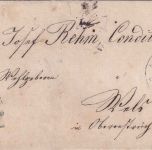 Josef Rehm, Condit
Wohlgeboren
Wels
in Oberöstreich